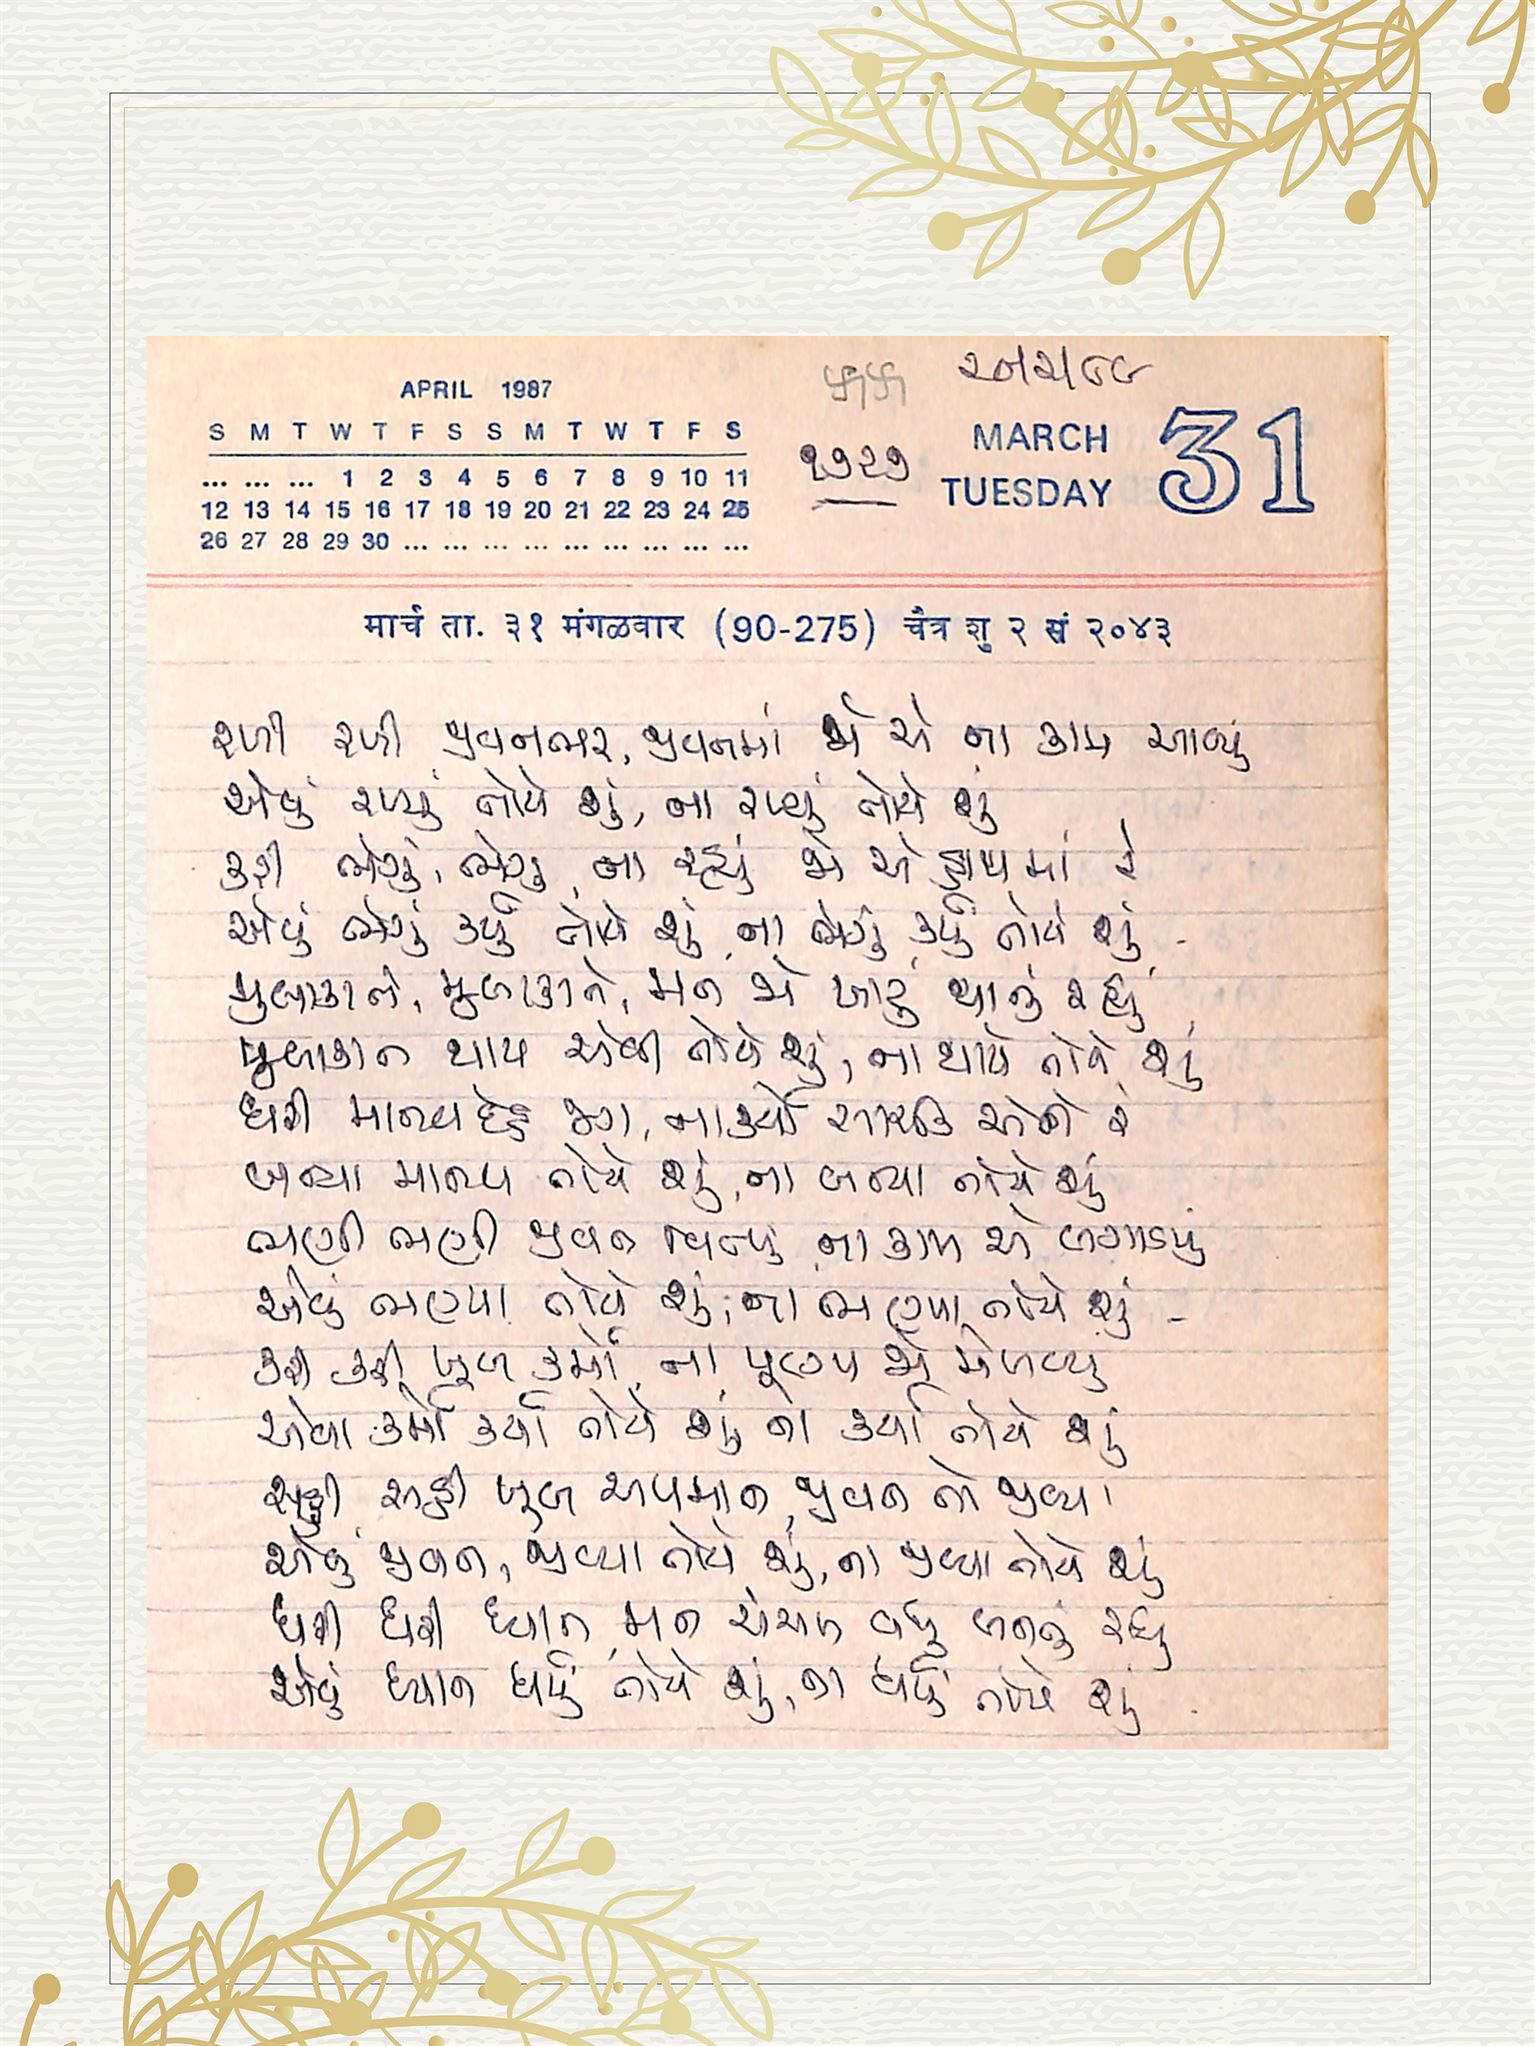 ૨૫/૨/૮૮
APRIL 1987
S M T W T F S S M T W T F S
... ... ... 1 2 3 4 5 6 7 8 9 10 11
12 13 14 15 16 17 18 19 20 21 22 23 24 25
26 27 28 29 30 ... ... ... ... ... ... ... ... ...
૧૭૨૭
MARCH 31
TUESDAY
मार्च ता. ३१ मंगळवार (90-275) चैत्र शु २ सं २०४३
રળી રળી જીવનભર, જીવનમાં જો એ ના કામ આવ્યું
એવું રળ્યું તોયે શું, ના રળ્યું તોયે શું
કરી ભેગું, ભેગું, ના રહ્યું જો એ હાથમાં રે
એવું ભેગું કર્યું તોયે શું, ના ભેગું કર્યું તોયે શું -
મુલાકાતે, મુલાકાતે, મન જો ખાટું થાતું રહ્યું
મુલાકાત થાય એવી તોયે શું, ના થાયે તોયે શું
ધરી માનવદેહ જગ, ના કર્યો સાર્થક એને રે
બન્યા માનવ તોયે શું, ના બન્યા તોયે શું
ભણી ભણી જીવન વિત્યું ના કામ એ લગાડયું
એવું ભણ્યા તોયે શું, ના ભણ્યા તોયે શું -
કરી કરી ખૂબ કર્મો, ના પૂણ્ય જો મેળવ્યું
એવા કર્મો કર્યા તોયે શું ના કર્યા તોયે શું
સહી સહી ખૂબ અપમાન, જીવન તો જીવ્યા
એવું જીવન, જીવ્યા તોયે શું, ના જીવ્યા તોયે શું
ધરી ધરી ધ્યાન, મન ચંચળ વધુ બનતું રહ્યું
એવું ધ્યાન ધર્યું તોયે શું, ના ધર્યું તોયે શું